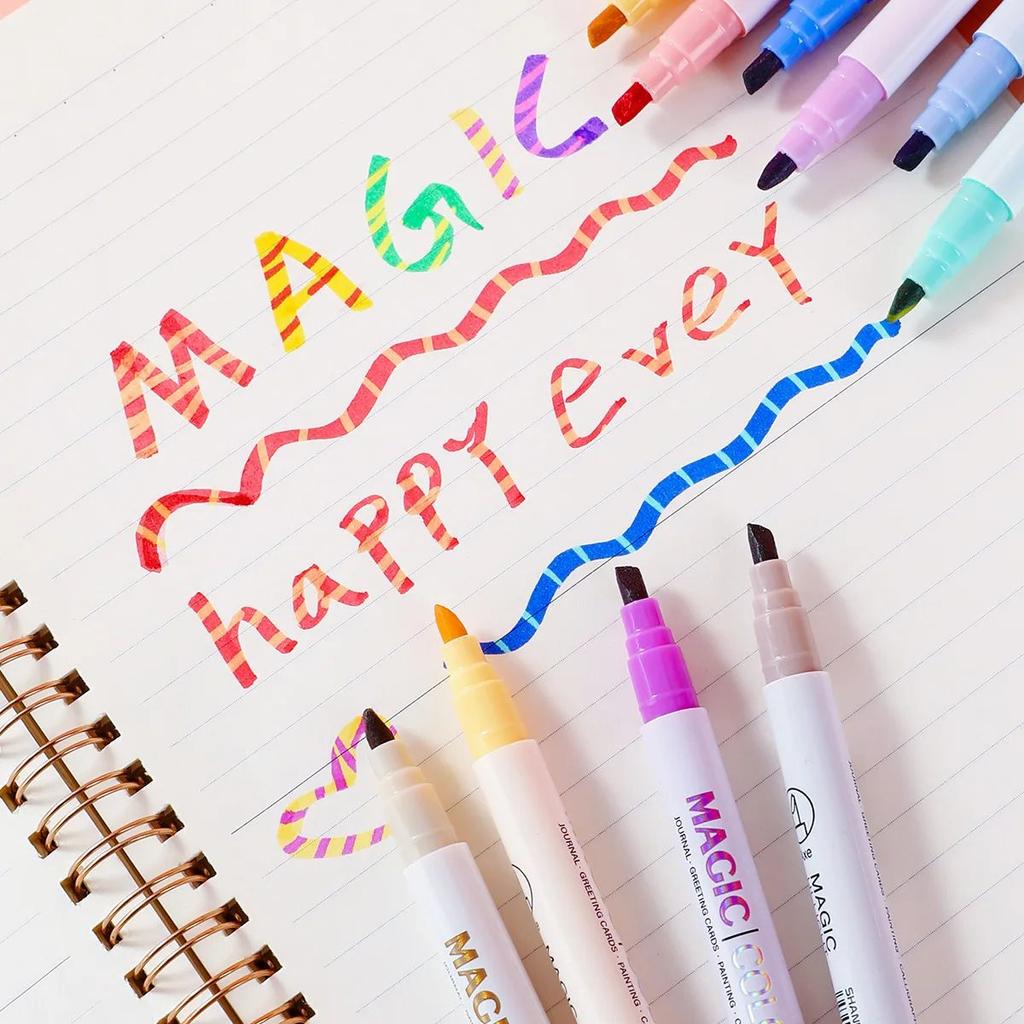 MAGIC
happy eveY
JOURNAL · GREETING CARDS · PAINTING
MAGIC COLO
JOURNAL · GREETING CARDS · PAINTING ·
MAGIC
SHAN
MAGI